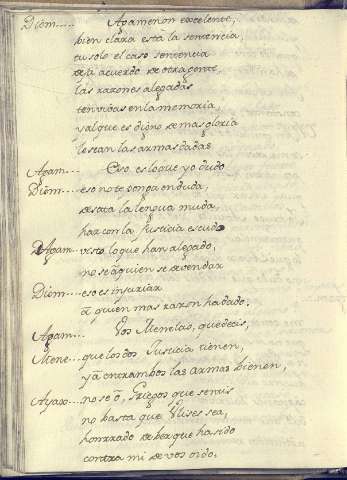 Diom.... Agamenon excelente,
bien clara está la sentencia,
tu solo el caso sentencia
deja acuerdo de otra gente,
las razones alegadas
ten vivas en la memoria,
y al que es digno de mas gloria
le sean las armas dadas.
Agam.... Eso es lo que yo dudo
Diom.... eso no te ponga en duda,
desata la lengua muda,
haz con la Justicia escudo
Agam.... visto lo que han alegado,
no se a quien se de vendar
Diom.... eso es injuriar
a quien mas razon ha dado.
Agam.... Vos Menelao, que decis,
Mene... que los dos Justicia tienen,
y a entrambos las armas bienen,
Ayax.... no se ô, Griegos que sentis
no basta que Ulises sea,
honrrado de ber que ha sido
contra mi de vos oido.